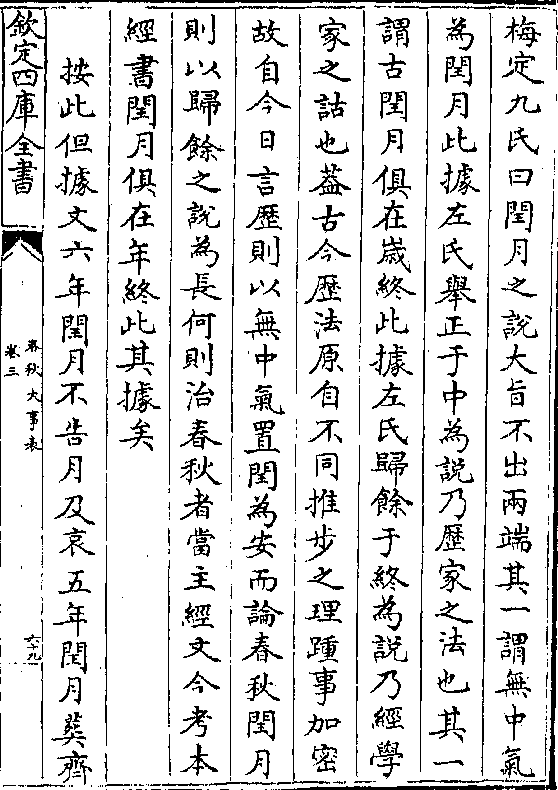 梅定九氏曰閏月之說大旨不出兩端其一謂無中氣
為閏月此據左氏舉正于中為說乃歷家之法也其一
謂古閏月俱在歲終此據左氏歸餘于終為說乃經學
家之詁也葢古今歷法原自不同推步之理踵事加密
故自今日言歷則以無中氣置閏為安而論春秋閏月
則以歸餘之說為長何則治春秋者當主經文今考本
經書閏月俱在年終此其據矣
按此但據文六年閏月不告月及哀五年閏月葬齊
欽定四庫全書
春秋大事表
卷三
六十九